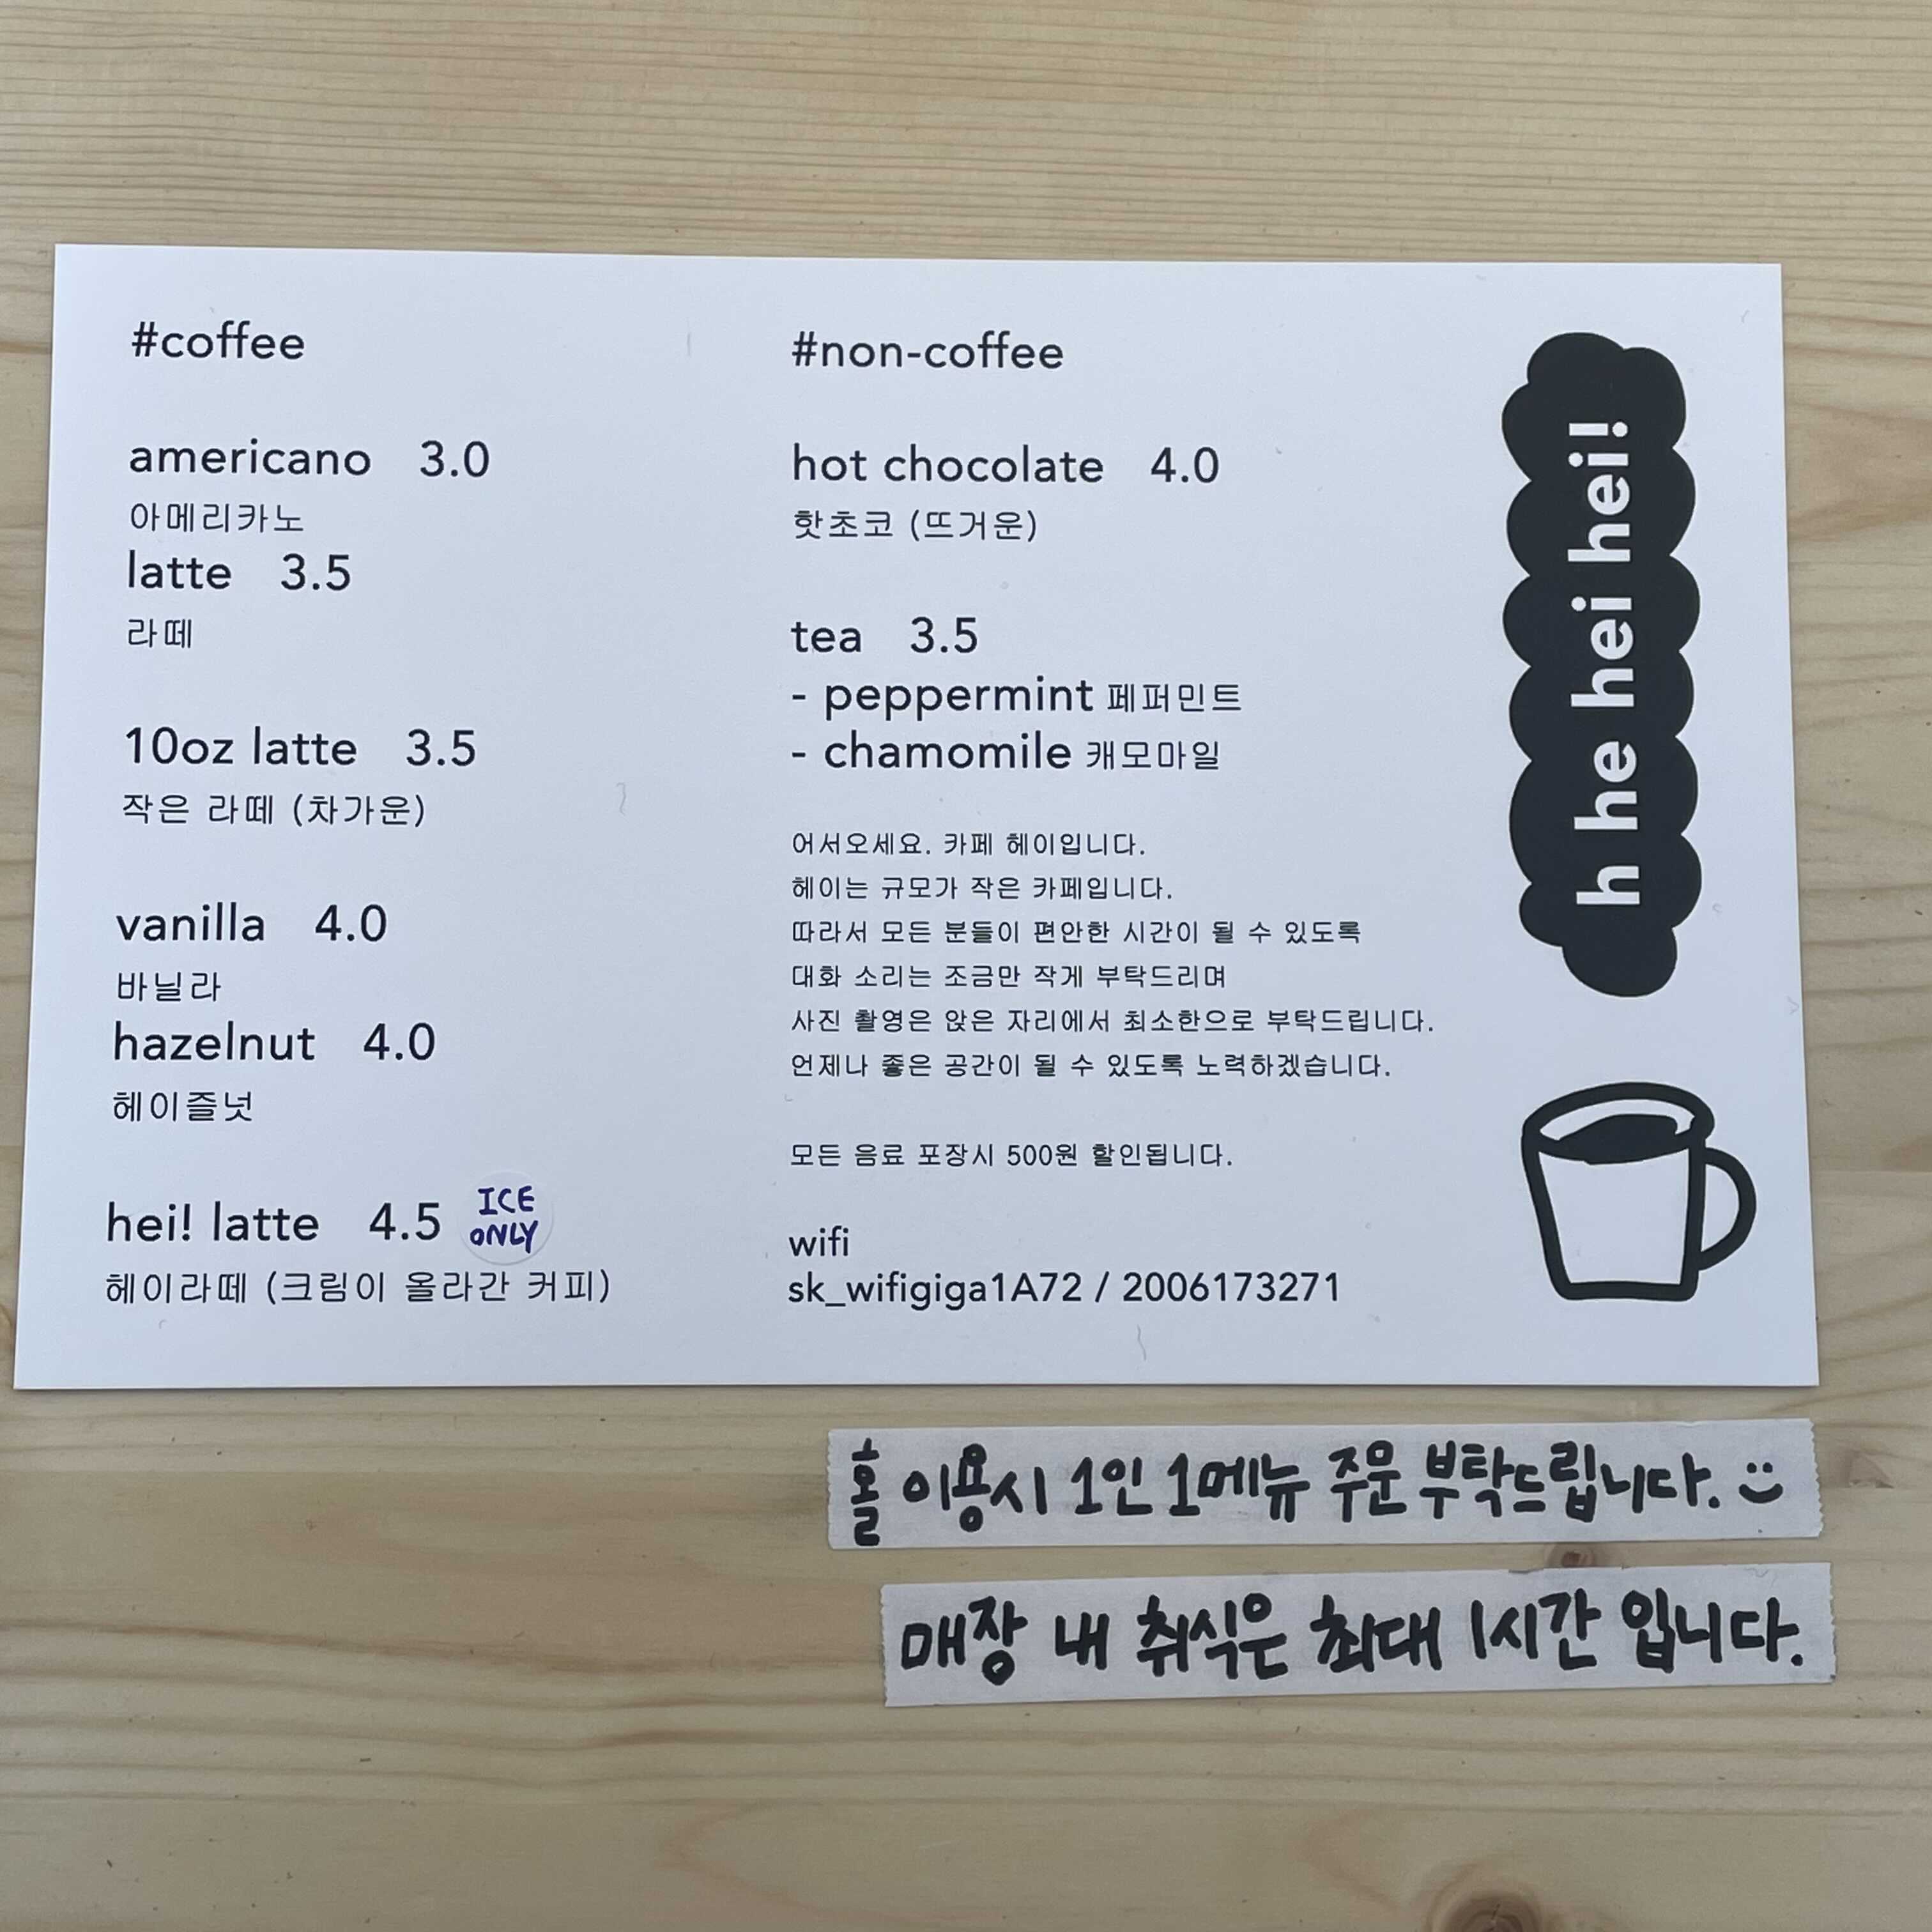 #coffee
americano 3.0
아메리카노
latte 3.5
라떼
10oz latte 3.5
작은 라떼 (차가운)
vanilla 4.0
바닐라
hazelnut 4.0
헤이즐넛
hei! latte 4.5
ICE
ONLY
헤이라떼 (크림이 올라간 커피)
#non-coffee
hot chocolate 4.0
핫초코 (뜨거운)
tea 3.5
- peppermint 페퍼민트
- chamomile 캐모마일
어서오세요. 카페 헤이입니다.
헤이는 규모가 작은 카페입니다.
따라서 모든 분들이 편안한 시간이 될 수 있도록
대화 소리는 조금만 작게 부탁드리며
사진 촬영은 앉은 자리에서 최소한으로 부탁드립니다.
언제나 좋은 공간이 될 수 있도록 노력하겠습니다.
모든 음료 포장시 500원 할인됩니다.
wifi
sk_wifigiga1A72 / 2006173271
h he hei hei!
홀 이용시 1인 1메뉴 주문 부탁드립니다.
매장 내 취식은 최대 1시간 입니다.